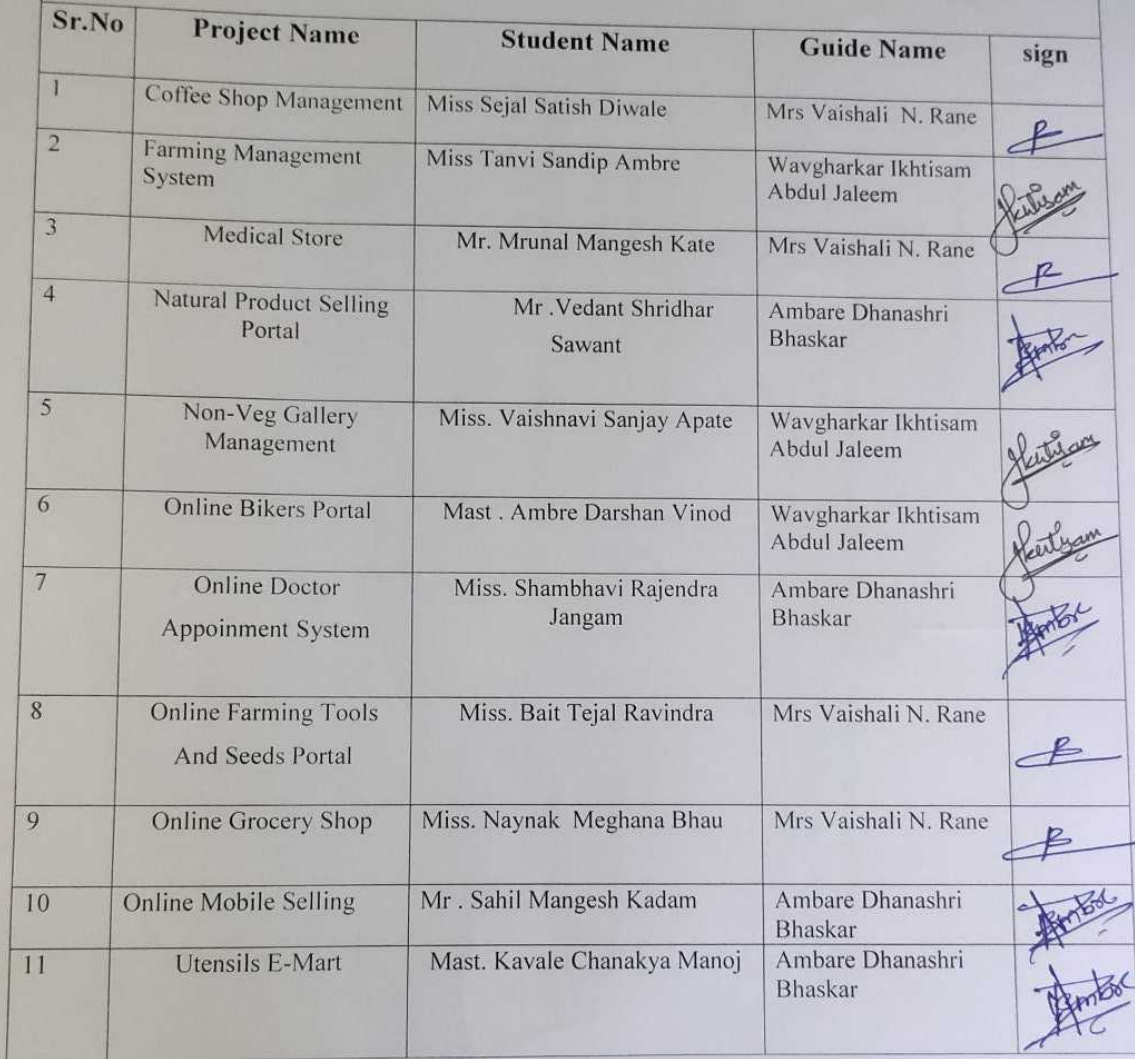 Sr.No Project Name Student Name Guide Name sign
1 Coffee Shop Management Miss Sejal Satish Diwale Mrs Vaishali N. Rane
2 Farming Management System Miss Tanvi Sandip Ambre Wavgharkar Ikhtisam Abdul Jaleem
3 Medical Store Mr. Mrunal Mangesh Kate Mrs Vaishali N. Rane
4 Natural Product Selling Portal Mr .Vedant Shridhar Sawant Ambare Dhanashri Bhaskar
5 Non-Veg Gallery Management Miss. Vaishnavi Sanjay Apate Wavgharkar Ikhtisam Abdul Jaleem
6 Online Bikers Portal Mast . Ambre Darshan Vinod Wavgharkar Ikhtisam Abdul Jaleem
7 Online Doctor Appoinment System Miss. Shambhavi Rajendra Jangam Ambare Dhanashri Bhaskar
8 Online Farming Tools And Seeds Portal Miss. Bait Tejal Ravindra Mrs Vaishali N. Rane
9 Online Grocery Shop Miss. Naynak Meghana Bhau Mrs Vaishali N. Rane
10 Online Mobile Selling Mr . Sahil Mangesh Kadam Ambare Dhanashri Bhaskar
11 Utensils E-Mart Mast. Kavale Chanakya Manoj Ambare Dhanashri Bhaskar